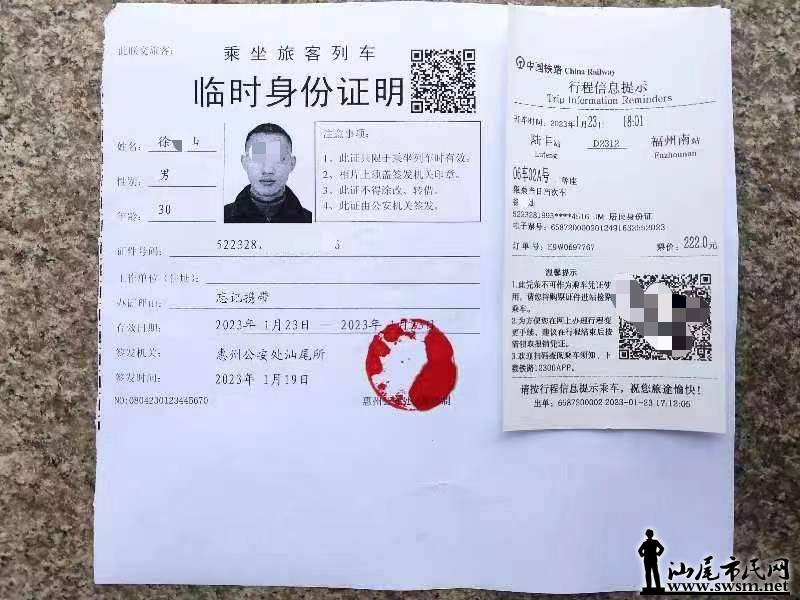 此联交旅客：
乘坐旅客列车
临时身份证明
姓名：徐
性别：男
年龄：30
注意事项：
1、此证只限于乘坐列车时有效；
2、相片上须盖签发机关印章。
3、此证不得涂改、转借。
4、此证由公安机关签发。
证件号码：522328.
工作单位(住址)：
办证理由：忘记携带
有效日期：2023年 1月23日 — 2023年
签发机关：惠州公安处汕尾所
签发时间：2023年 1月19日
NO:0804230123445670
中国铁路 China Railway
行程信息提示
Trip Information Reminders
开车时间：2023年1月23日 18:01
陆丰站 D2312 福州南站
Lufeng Fuzhounan
06车02A号
限乘当日当次车
居民身份证
订单号：E9W0697767 票价：222.0元
温馨提示
1.此凭条不可作为乘车凭证使
用，请您持购票证件进站检票
乘车。
2.为方便您在网上办理行程变
更手续，建议在行程结束后按
需领取报销凭证。
3.欢迎扫码查阅乘车须知，下
载铁路12306APP。
请按行程信息提示乘车，祝您旅途愉快！
汕尾市民网
www.swsm.net